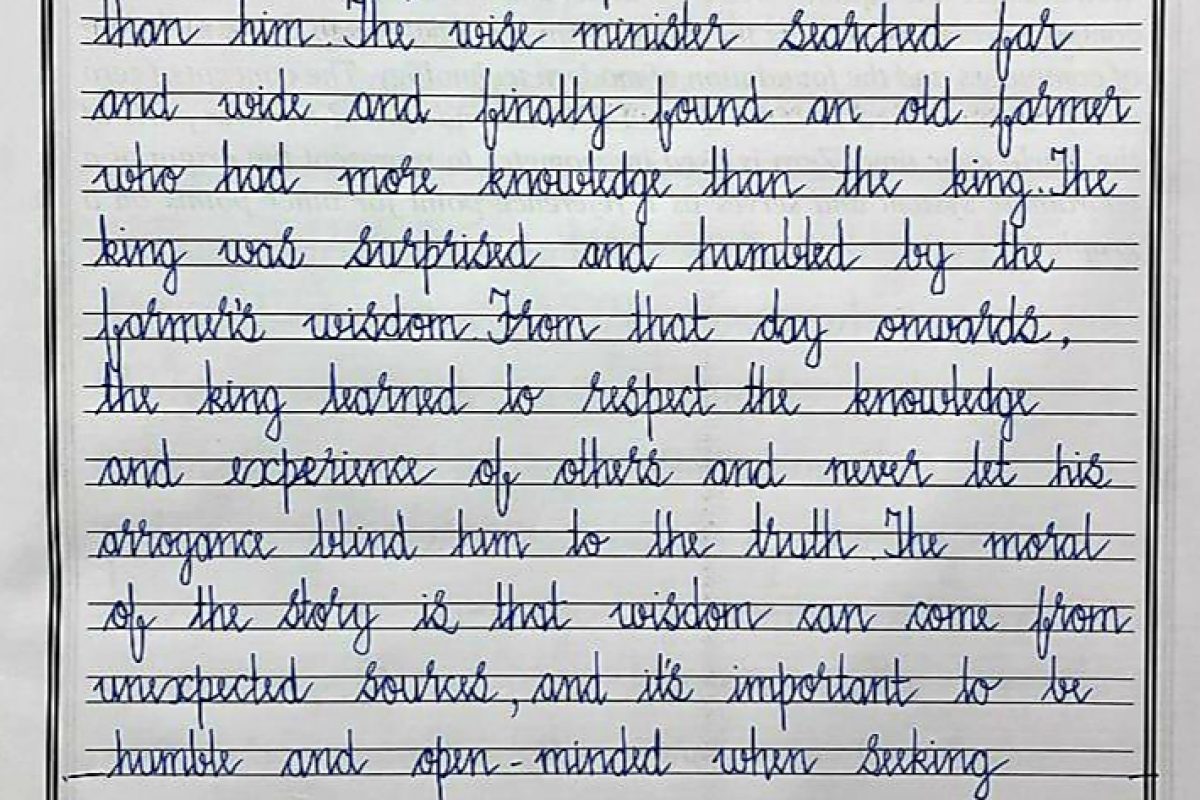 than him. The wise minister searched far
and wide and finally found an old farmer
who had more knowledge than the king. The
king was surprised and humbled by the
farmer's wisdom. From that day onwards,
the king learned to respect the knowledge
and experience of others and never let his
arrogance blind him to the truth. The moral
of the story is that wisdom can come from
unexpected sources, and it's important to be
humble and open-minded when seeking